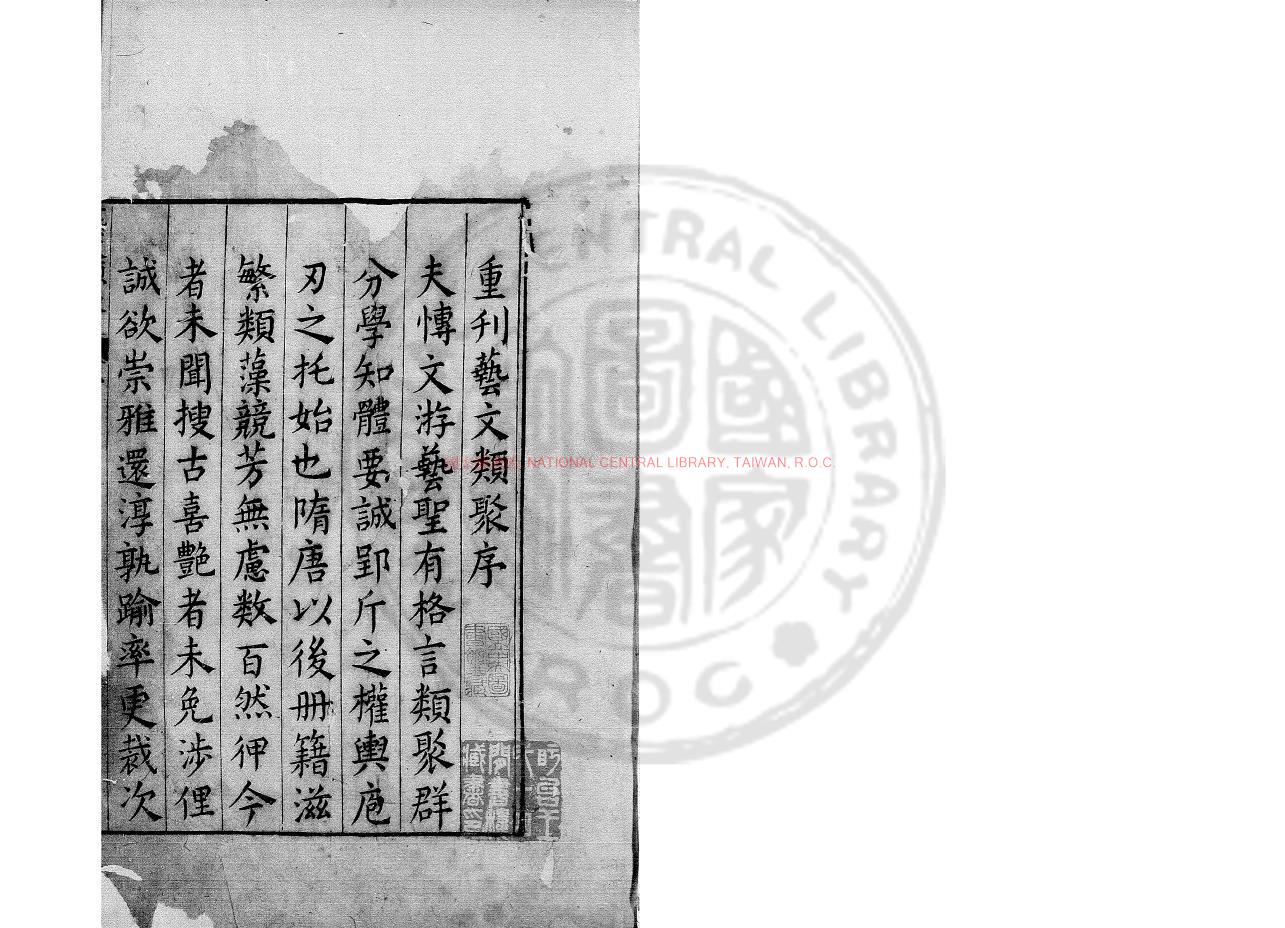 重刋藝文類聚序
夫慱文游藝聖有格言類聚群
分學知體要誠郢斤之權輿庖
刃之托始也隋唐以後冊籍滋
繁類藻競芳無慮数百然狎今
者未聞搜古喜艷者未免涉俚
誠欲崇雅還淳孰踰率更裁次
NATIONAL CENTRAL LIBRARY, TAIWAN, R.O.C.
CENTRAL LIBRARY
ROC
國家圖書